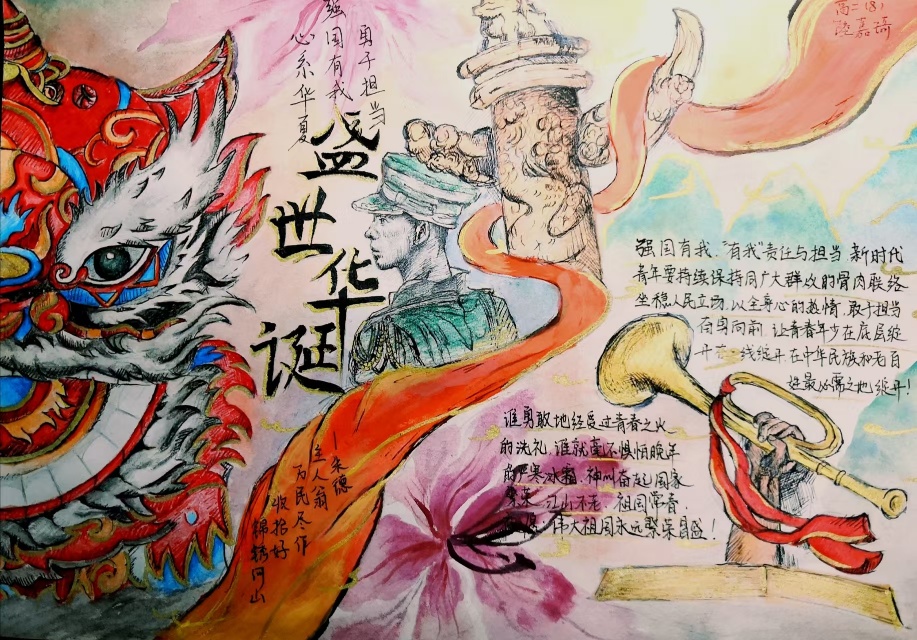 高二(8)
陸嘉琦
勇于担当
强国有我
心系华夏
盛世华诞
强国有我."有我"责任与担当.新时代
青年要持续保持同广大群众的骨肉联络
坐稳人民立场,以全身心的热情.敢于担当
奋勇向前.让青春年少在底层绽
开在一线绽开在中华民族和老百
姓最必需之地绽开!
谁勇敢地经受过青春之火
的洗礼.谁就毫不惧怕晚年
的严寒冰霜.神州奋起.国家
繁荣.江山不老.祖国常春.
伟大祖国永远繁荣昌盛!
—朱德
主人翁
万民尽作
收拾好
锦绣河山